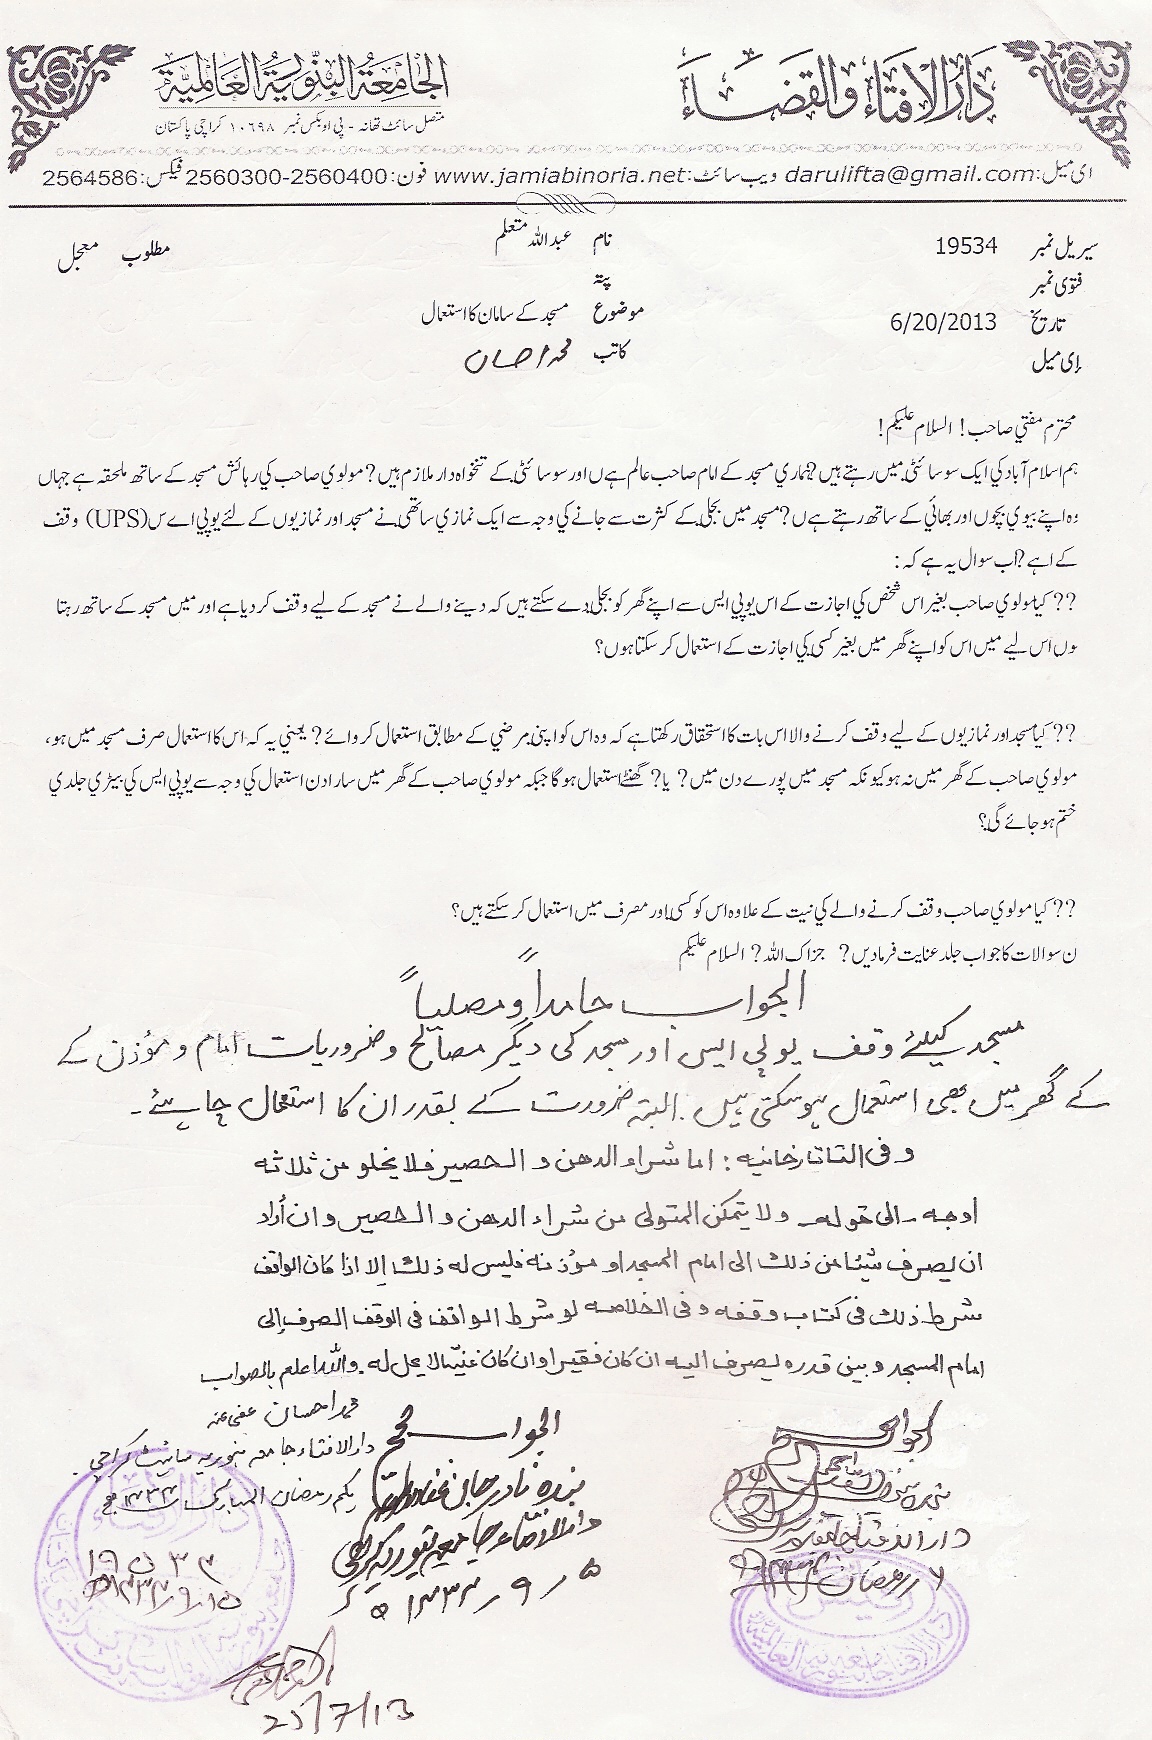 دَارُ الْاِفْتَاءِ وَالْقَضَاءِ
الجَامِعَةُ البِنُّورِيَّةُ العَالَمِيَّة
متصل سائٹ تھانہ - پی او بکس نمبر ۱۰۶۹۸ کراچی پاکستان
ای میل:darulifta@gmail.com ویب سائٹ:www.jamiabinoria.net فون:2560300-2560400 فیکس:2564586
سیریل نمبر 19534 نام عبد اللہ متعلم مطلوب معجل
فتوی نمبر پتہ
تاریخ 6/20/2013 موضوع مسجد کے سامان کا استعمال
إی میل کاتب محمد احسان
محترم مفتي صاحب! السلام عليكم!
ہم اسلام آباد کي ايک سوسائٹي ميں رہتے ہيں?ہماري مسجد کے امام صاحب عالم ہےں اور سوسائٹي کے تنخواہ دار ملازم ہيں? مولوي صاحب کي رہائش مسجد کے ساتھ ملحقہ ہے جہاں
وہ اپنے بيوي بچوں اور بھائي کے ساتھ رہتے ہےں?مسجد ميں بجلي کے کثرت سے جانے کي وجہ سے ايک نمازي ساتھي نے مسجد اور نمازيوں کے لئے يوپي اے س(UPS) وقف
کے اہے?اب سوال يہ ہے کہ:
?? کيا مولوي صاحب بغير اس شخص کي اجازت کے اس يوپي ايس سے اپنے گھر کو بجلي دے سکتے ہيں کہ دينے والے نے مسجد کے ليے وقف کر ديا ہے اور ميں مسجد کے ساتھ رہتا
ہوں اس ليے ميں اس کو اپنے گھر ميں بغير کسي کي اجازت کے استعمال کر سکتا ہوں؟
?? کيا مسجد اور نمازيوں کے ليے وقف کرنے والا اس بات کا استحقاق رکھتا ہے کہ وہ اس کو اپني مرضي کے مطابق استعمال کروائے? يعني يہ کہ اس کا استعمال صرف مسجد ميں ہو،
مولوي صاحب کے گھر ميں نہ ہو کيونکہ مسجد ميں پورے دن ميں? يا? گھنٹے استعمال ہوگا جبکہ مولوي صاحب کے گھر ميں سارا دن استعمال کي وجہ سے يوپي ايس کي بيٹري جلدي
ختم ہو جائے گي؟
?? کيا مولوي صاحب وقف کرنے والے کي نيت کے علاوہ اس کو کسي اور مصرف ميں استعمال کر سکتے ہيں؟
ن سوالات کا جواب جلد عنايت فرماديں? جزاک اللہ? السلام عليکم
الجواب حامداً ومصلیاً
مسجد کیلئے وقف یو پی ایس اور مسجد کی دیگر مصالح و ضروریات امام و مؤذن کے
کے گھر میں بھی استعمال ہو سکتی ہیں۔ البتہ ضرورت کے بقدر ان کا استعمال چاہیئے۔
وفی التاتارخانیه: اما شراء الدهن و الحصیر فلا یخلو من ثلاثه
اوجه ۔الی قوله۔ ولا یتمکن المتولی من شراء الدهن و الحصیر و ان أراد
ان یصرف شیئا من ذلک الی امام المسجد او مؤذنه فلیس له ذلک إلا اذا کان الواقف
شرط ذلک فی کتاب وقفه وفی الخلاصه لو شرط الواقف فی الوقف الصرف إلی
امام المسجد و بین قدره یصرف الیه ان کان فقیرا وان کان غنیا لا یحل له۔ واللہ اعلم بالصواب
محمد احسان عفی عنہ
دارالافتاء جامعہ بنوریہ سائیٹ کراچی
یکم رمضان المبارک ۱۴۳۴ھ
الجواب صحیح
بندہ نادر جان
دارالافتاء جامعہ بنوریہ کراچی
۵ / ۹ / ۱۴۳۴ھ
الجواب صحیح
دارالافتاء
۶ رمضان
۱۹۵۳۴
25/7/13